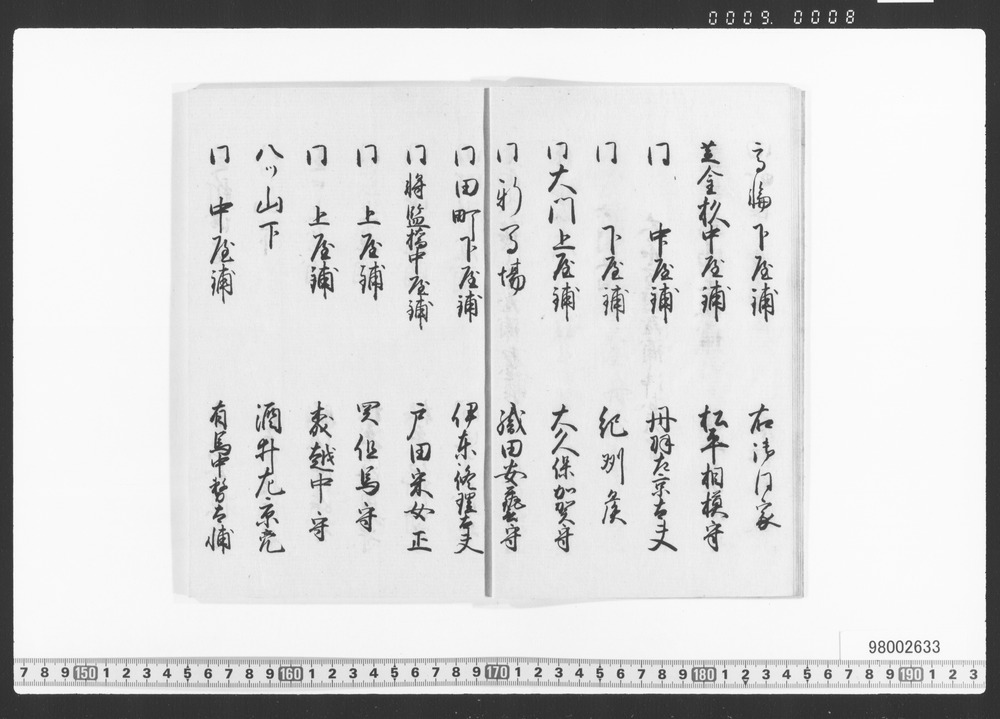 0009. 0008
高輪下屋鋪 右御同家
芝金杦中屋鋪 松平相模守
同 中屋鋪 丹羽左京大夫
同 下屋鋪 紀州侯
同大門上屋鋪 大久保加賀守
同新馬場 織田安藝守
同田町下屋鋪 伊東修理大夫
同将監橋中屋鋪 戸田采女正
同 上屋鋪 関但馬守
同 上屋鋪 森越中守
八ッ山下 酒井左京亮
同 中屋鋪 有馬中務大輔
98002633
7 8 9 150 1 2 3 4 5 6 7 8 9 160 1 2 3 4 5 6 7 8 9 170 1 2 3 4 5 6 7 8 9 180 1 2 3 4 5 6 7 8 9 190 1 2 3